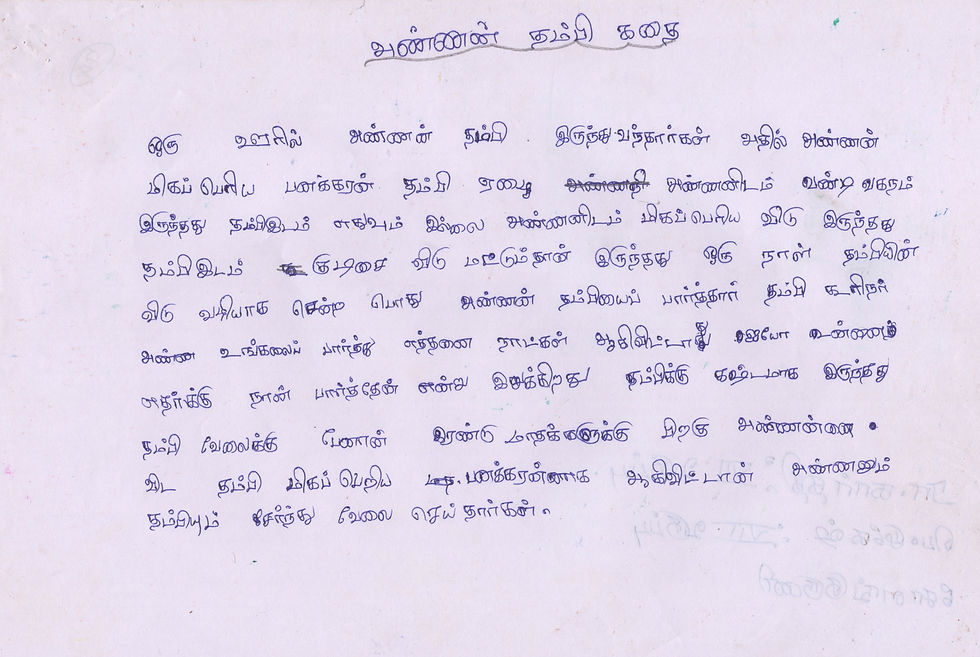 அண்ணன் தம்பி கதை
ஒரு ஊரில் அண்ணன் தம்பி இருந்து வந்தார்கள் அதில் அண்ணன்
மிகப் பெரிய பனக்கரன் தம்பி ஏழை அண்ணனிடம் வண்டி வகனம்
இருந்தது தம்பிஇடம் எதுவும் இல்லை அண்ணனிடம் மிகப்பெரிய வீடு இருந்தது
தம்பிஇடம் குடிசை வீடு மட்டும்தான் இருந்தது ஒரு நாள் தம்பியின்
வீடு வழியாக சென்ற பொது அண்ணன் தம்பியைப் பார்த்தார் தம்பி கூரினர்
அண்ண உங்கலைப் பார்த்து எத்தனை நாட்கள் ஆகிவிட்டாது ஐயோ உன்னை
எதர்க்கு நான் பார்த்தேன் என்று இருக்கிறது தம்பிக்கு கஷ்டமாக இருந்தது
தம்பி வேலைக்கு போனான் இரண்டு மாதக்களுக்கு பிறகு அண்ணன்னை
விட தம்பி மிகப் பெறிய பனக்கரன்னாக ஆகிவிட்டான் அண்ணனும்
தம்பியும் சேர்ந்து வேலை செய்தார்கள்.